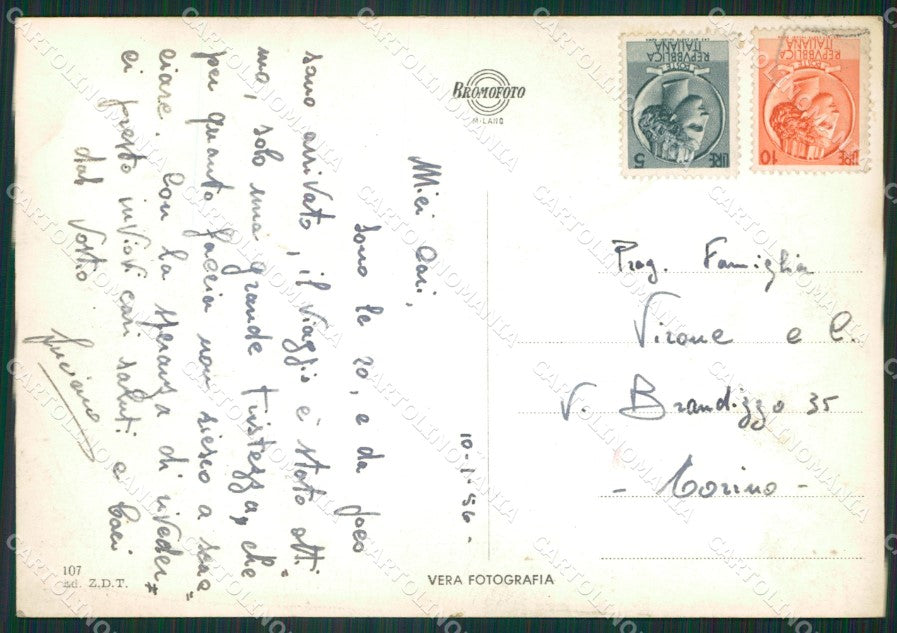 10-1-56-
Miei Cari,
sono le 20, e da poco
sono arrivato, il viaggio è stato otti=
mo, solo una grande tristezza, che
per quanto faccia non riesco a scac=
ciare. Con la speranza di riveder=
ci presto inviovi cari saluti e baci
dal Vostro
Luciano
BROMOFOTO
MILANO
REPVBBLICA
ITALIANA
POSTE
LIRE 5
REPVBBLICA
ITALIANA
POSTE
LIRE 10
Preg. Famiglia
Virone e C.
V. Brandizzo 35
- Torino -
107
Ed. Z.D.T.
VERA FOTOGRAFIA
CARTOLINOMANIA